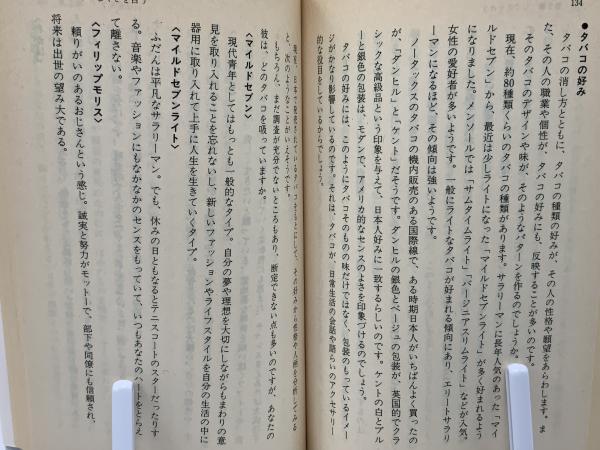 134
●タバコの好み
タバコの消し方とともに、タバコの種類の好みが、その人の性格や願望をあらわします。ま
た、その人の職業や個性が、タバコの好みにも、反映することが多いのです。
そのタバコのデザインや味が、そのようなパターンを作るのでしょうか。
現在、約80種類くらいのタバコの種類があります。サラリーマンに長年人気のあった「マイ
ルドセブン」から、最近は少しライトになった「マイルドセブンライト」が多く好まれるよう
になりました。メンソールでは「サムタイムライト」「バージニアスリムライト」などが入気。
女性の愛好者が多いようです。一般にライトなタバコが好まれる傾向にあり、エリートサラリ
ーマンになるほど、その傾向は強いようです。
ノータックスのタバコの機内販売のある国際線で、ある時期日本人がいちばんよく買ったの
が、「ダンヒル」と「ケント」だそうです。ダンヒルの銀色とベージュの包装が、英国的でクラ
シックな高級品という印象を与えて、日本人好みに一致するらしいのです。ケントの白とブル
ーと銀色の包装は、モダンで、アメリカ的なセンスのよさを印象づけるのでしょう。
タバコの好みには、このようにタバコそのものの味だけではなく、包装のもっているイメー
ジがかなり影響しているのです。それは、タバコが、日常生活の会話や語らいのアクセサリー
的な役目をしているからでしょう。
と、次のようなことがいえそうです。
もちろん、まだ調査が充分でないところもあり、断定できない点も多いのですが、あなたの
彼は、どのタバコを吸っていますか。
〈マイルドセブン〉
現代青年としてはもっとも一般的なタイプ。自分の夢や理想を大切にしながらもまわりの意
見を取り入れることを忘れないし、新しいファッションやライフスタイルを自分の生活の中に
器用に取り入れて上手に人生を生きていくタイプ。
〈マイルドセブンライト〉
ふだんは平凡なサラリーマン。でも、休みの日ともなるとテニスコートのスターだったりす
る。音楽やファッションにもなかなかのセンスをもっていて、いつもあなたのハートをとらえ
て離さない。
〈フィリップモリス〉
頼りがいのあるおじさんという感じ。誠実と努力がモットーで、部下や同僚にも信頼され、
将来は出世の望み大である。